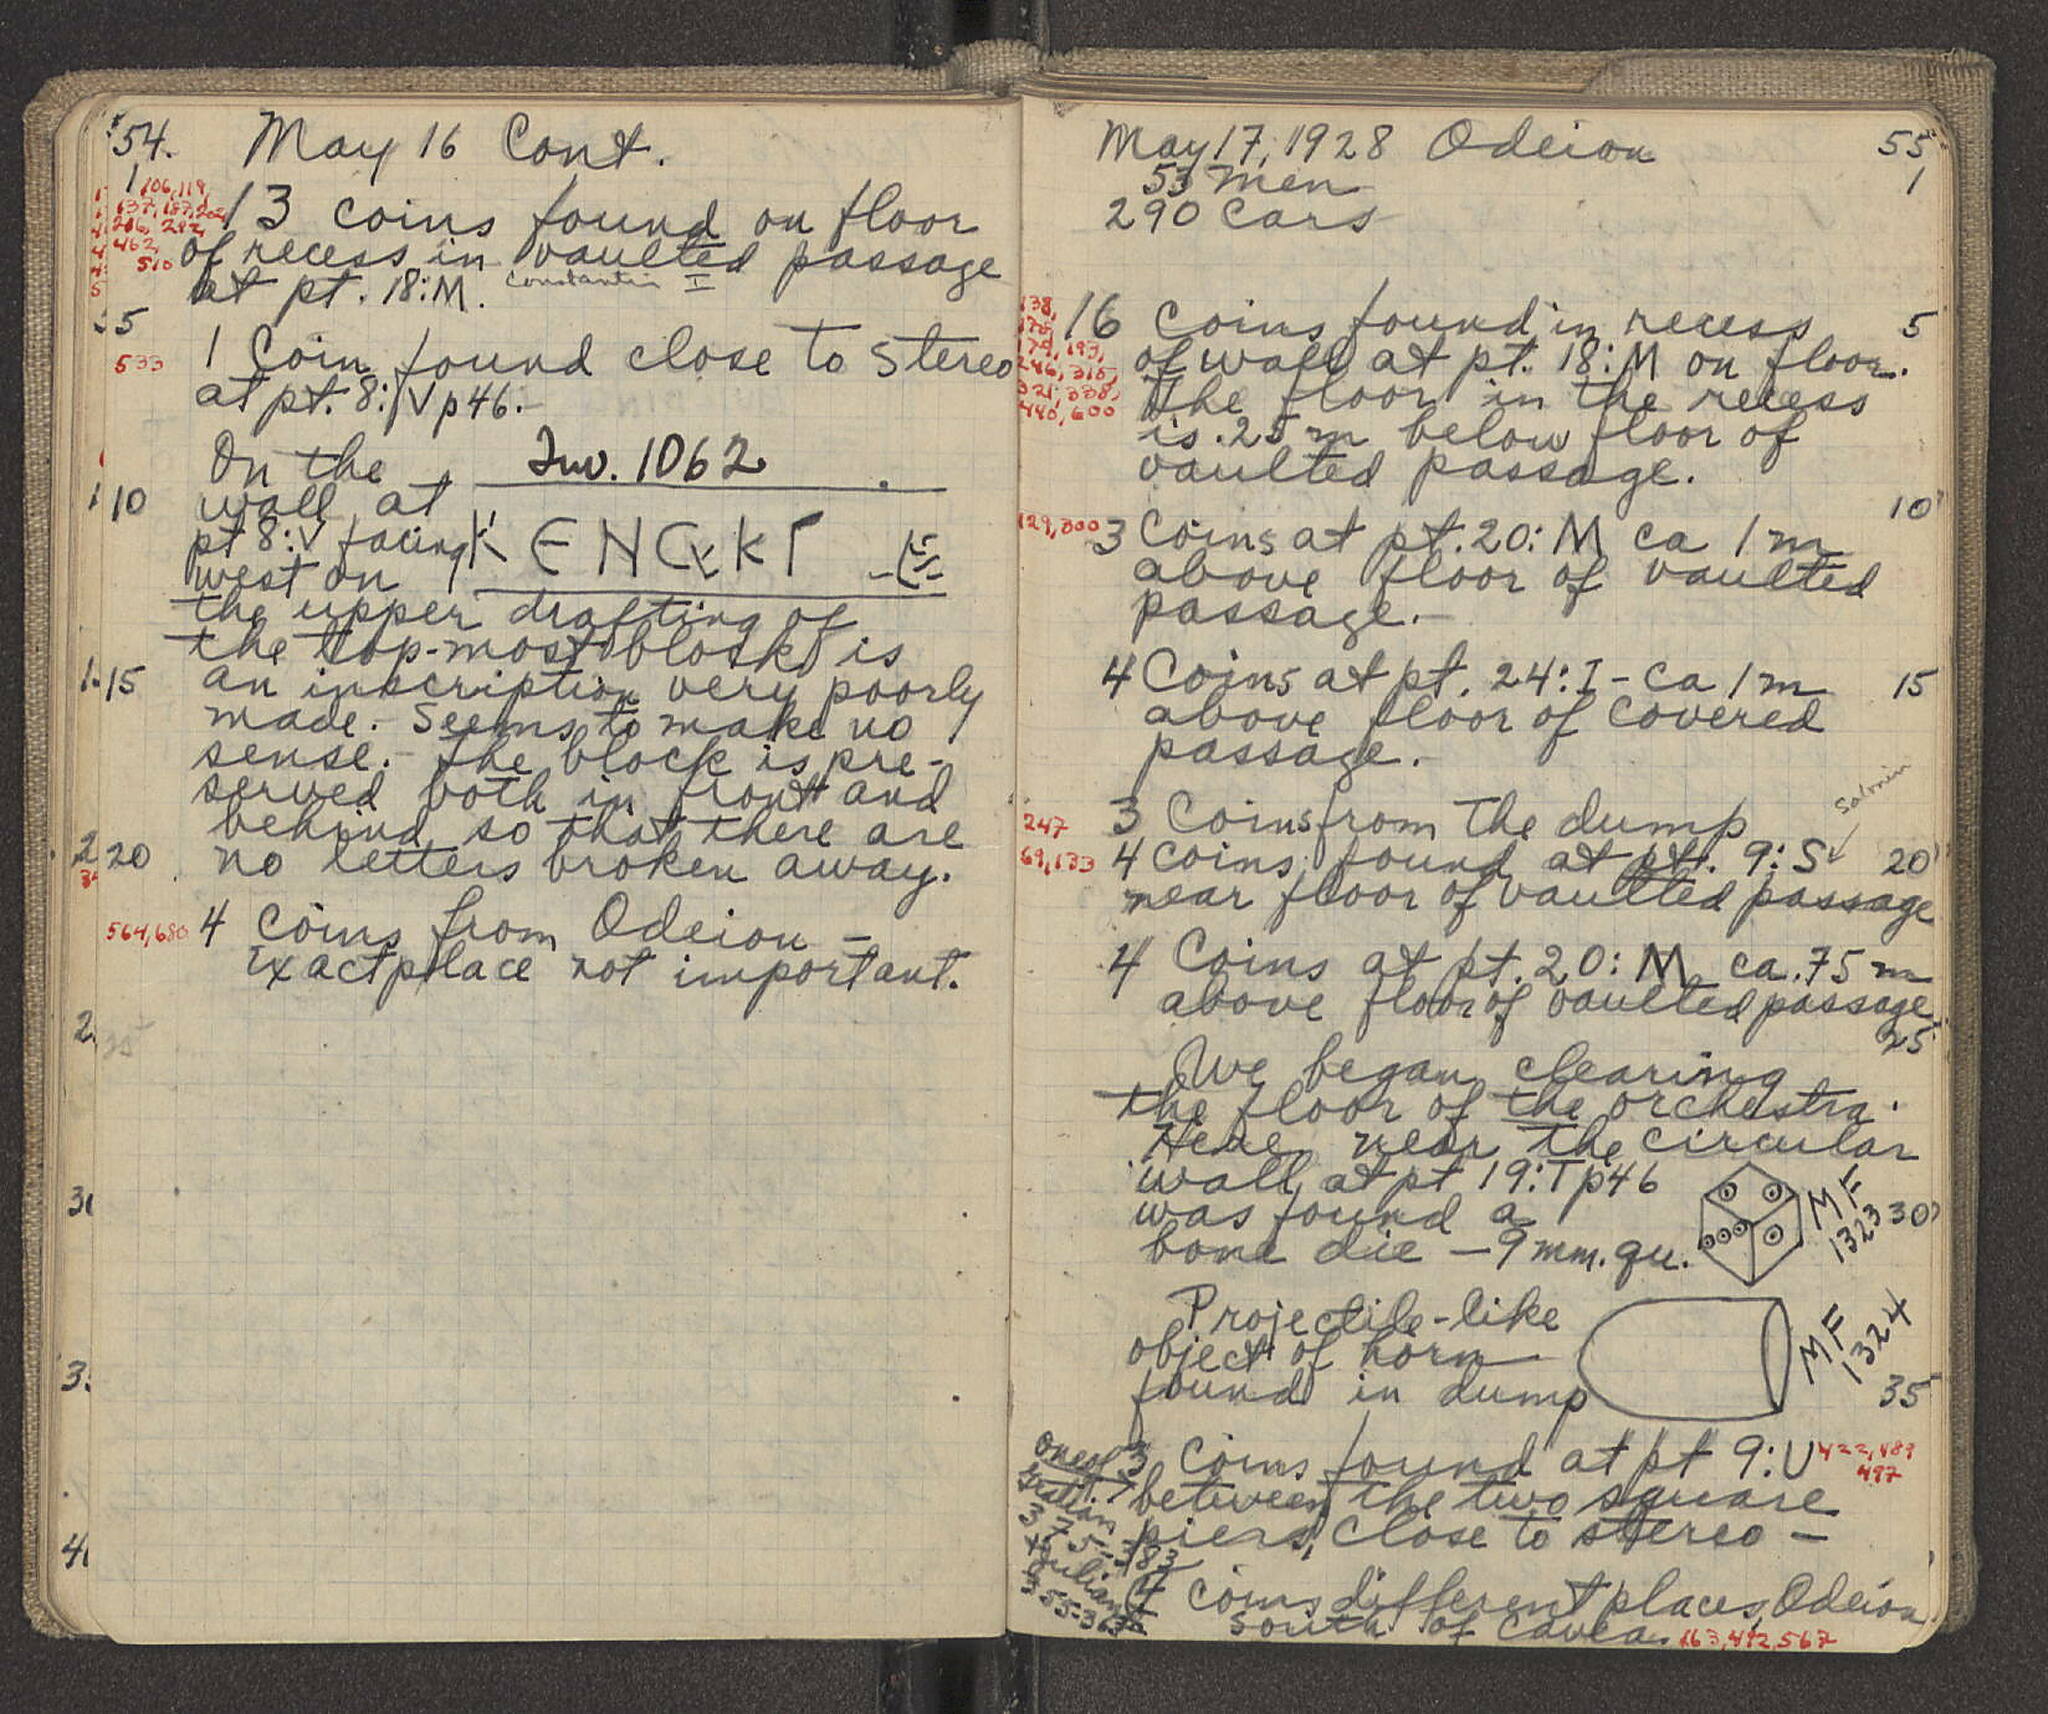 54. May 16 Cont.
1
106, 119,
137, 187, 202
206, 282,
462,
510
13 coins found on floor
of recess in vaulted passage
at pt. 18:M. Constantin I
5
533
1 Coin found close to Stereo
at pt. 8:V p46.-
On the Inv. 1062
10
wall at
pt 8:V facing
west on
K ENC KΓ
the upper drafting of
the top-most block is
15
an inscription very poorly
made.- Seems to make no
sense.- The block is pre-
served both in front and
behind so that there are
20
no letters broken away.
564, 680
4 coins from Odeion -
Exact place not important.
25
May 17, 1928 Odeion 55
53 men 1
290 Cars
138,
179, 193,
246, 315,
321, 338,
440, 600
16 coins found in recess 5
of wall at pt. 18:M on floor.
The floor in the recess
is .25 m below floor of
vaulted passage.
10
129, 300
3 Coins at pt. 20:M ca 1 m
above floor of vaulted
passage.-
4 Coins at pt. 24:I - ca 1 m 15
above floor of covered
passage.
Salonin
247 3 Coins from the dump
69, 133 4 coins found at pt. 9:S 20
near floor of vaulted passage
4 Coins at pt. 20:M ca .75 m
above floor of vaulted passage.
25
We began clearing
the floor of the orchestra.
Here near the circular
wall at pt 19:T p46
was found a 30
bone die - 9 mm. qu.
MF
1323
Projectile-like
object of horn
found in dump 35
MF
1324
3 coins found at pt 9:U 422, 489
497
between the two square
piers, close to stereo -
one of
Gratian
375-383
+Julian
355-363
4 coins different places, Odeion
South of Cavea. 163, 492, 567